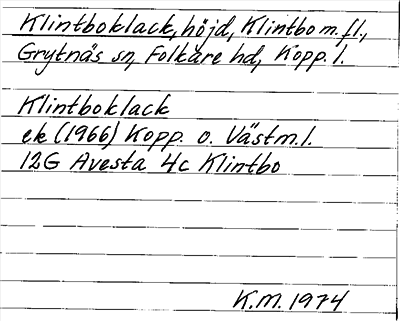 Klintboklack, höjd, Klintbo m. fl.,
Grytnäs sn, Folkare hd, Kopp. l.
Klintboklack
ek (1966) Kopp. o. Västm. l.
12G Avesta 4c Klintbo
K.M. 1974